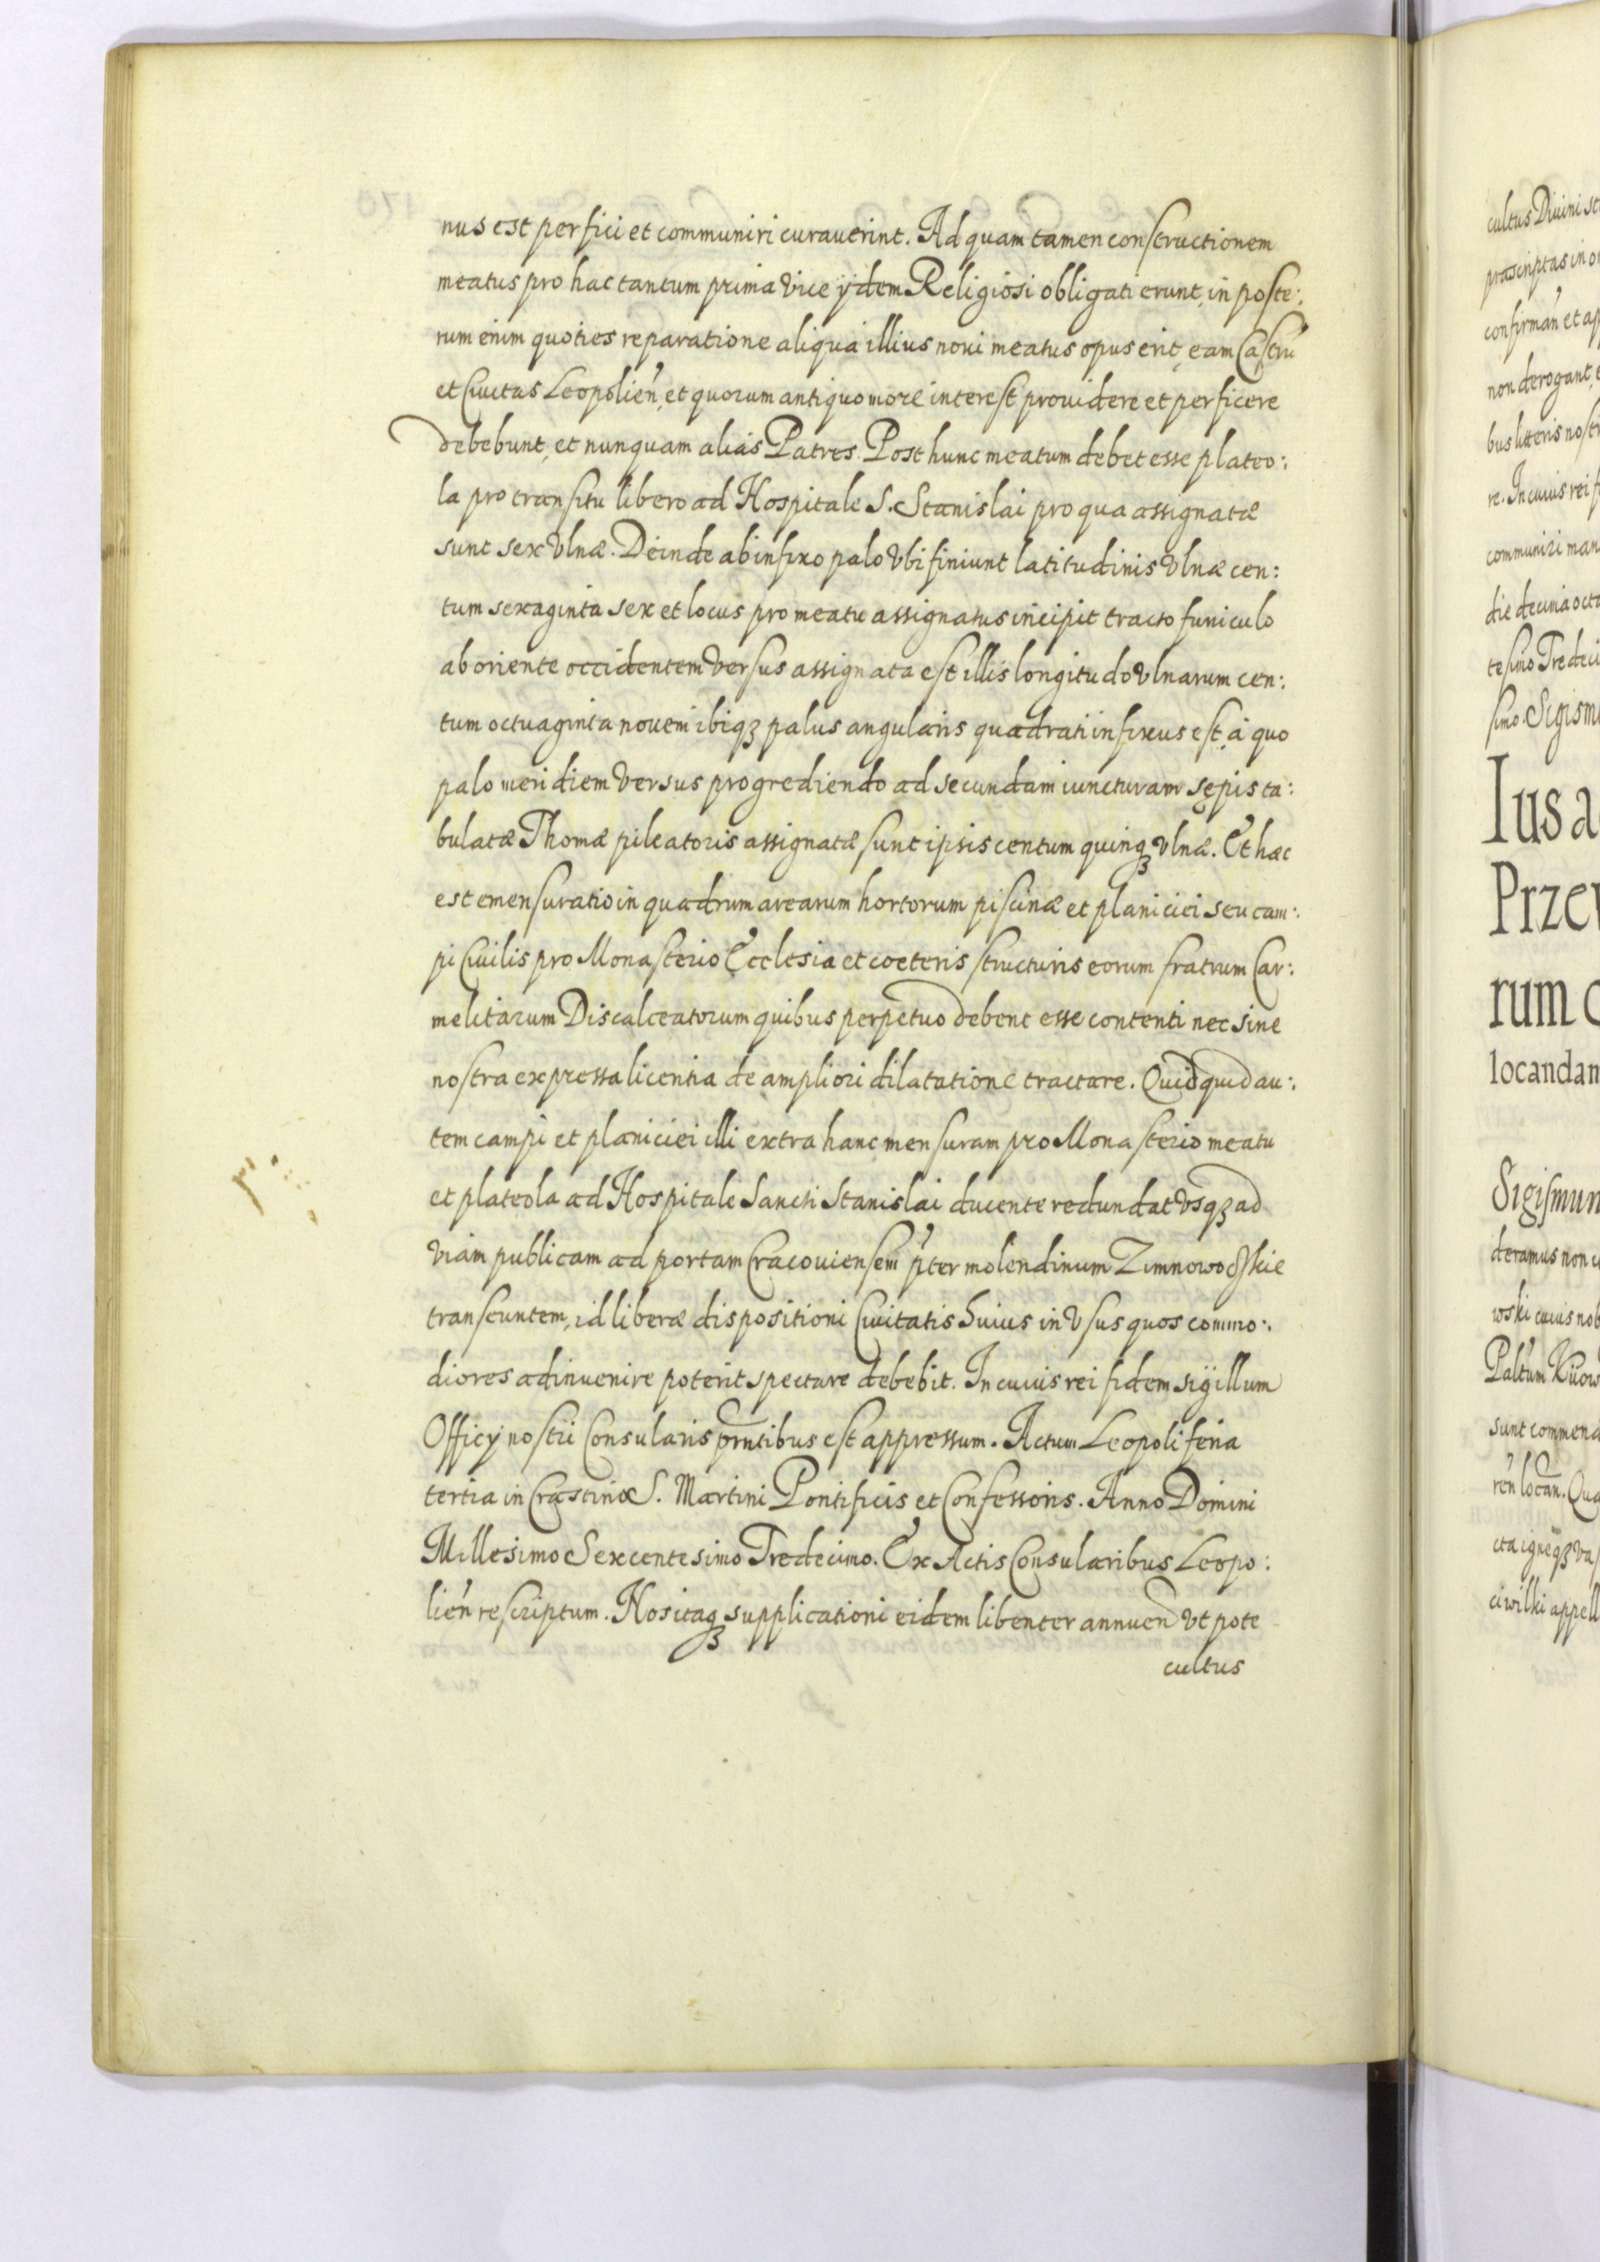 nus est perfici et communiri curauerint. Ad quam tamen constructionem
meatus pro hac tantum prima vice ijdem Religiosi obligati erunt, in poste:
rum enim quoties reparatione aliqua illius noui meatus opus erit, eam Castrũ
et Ciuitas Leopolien̄, et quorum antiquo more interest prouidere et perficere
debebunt, et nunquam alias Patres. Post hunc meatum debet esse plateo:
la pro transitu libero ad Hospitale S. Stanislai pro qua assignatæ
sunt sex Vlnæ. Deinde ab infixo palo Vbi finiunt latitudinis Vlnæ cen:
tum sexaginta sex et locus pro meatu assignatus incipit tracto funiculo
ab oriente occidentem versus assignata est illis longitudo Vlnarum cen:
tum octuaginta nouem ibiqꝫ palus angularis quadrati infixus est, à quo
palo meridiem versus progrediendo ad secundam iuncturam sępis ta:
bulatæ Thomæ pileatoris assignatæ sunt ipsis centum quinqꝫ vlnæ. Et hæc
est emensuratio in quadrum arearum hortorum piscinæ et planiciei seu cam:
pi Ciuilis pro Monasterio Ecclesia et coeteris structuris eorum fratrum Car:
melitarum Discalceatorum quibus perpetuo debent esse contenti nec sine
nostra expressa licentia de ampliori dilatatione tractare. Quidquid au:
tem campi et planiciei illi extra hanc mensuram pro Monasterio meatu
et plateola ad Hospitale Sancti Stanislai ducente redundat vsqꝫ ad
viam publicam ad portam Cracouiensem p̄ter molendinum Zimnowodskie
transeuntem, id liberæ dispositioni Ciuitatis huius in Vsus quos commo:
diores adinuenire poterit spectare debebit. In cuius rei fidem sigillum
Officij nostri Consularis pr̃ntibus est appressum. Actum Leopoli feria
tertia in Crastino S. Martini Pontificis et Confessoris. Anno Domini
Millesimo Sexcentesimo Tredecimo. Ex Actis Consularibus Leopo:
lien̄ rescriptum. Nos itaqꝫ supplicationi eidem libenter annuen̄ vt pote
cultus
cultus Diuini
præscriptas in
confirman̄ et
non derogant,
bus litteris
re. In cuius rei
communiri
die decima
Sigism
Ius a
Prze
rum
locandam
Sigismun
deramus non
wski cuius
sunt commend
ren̄ locan̄.